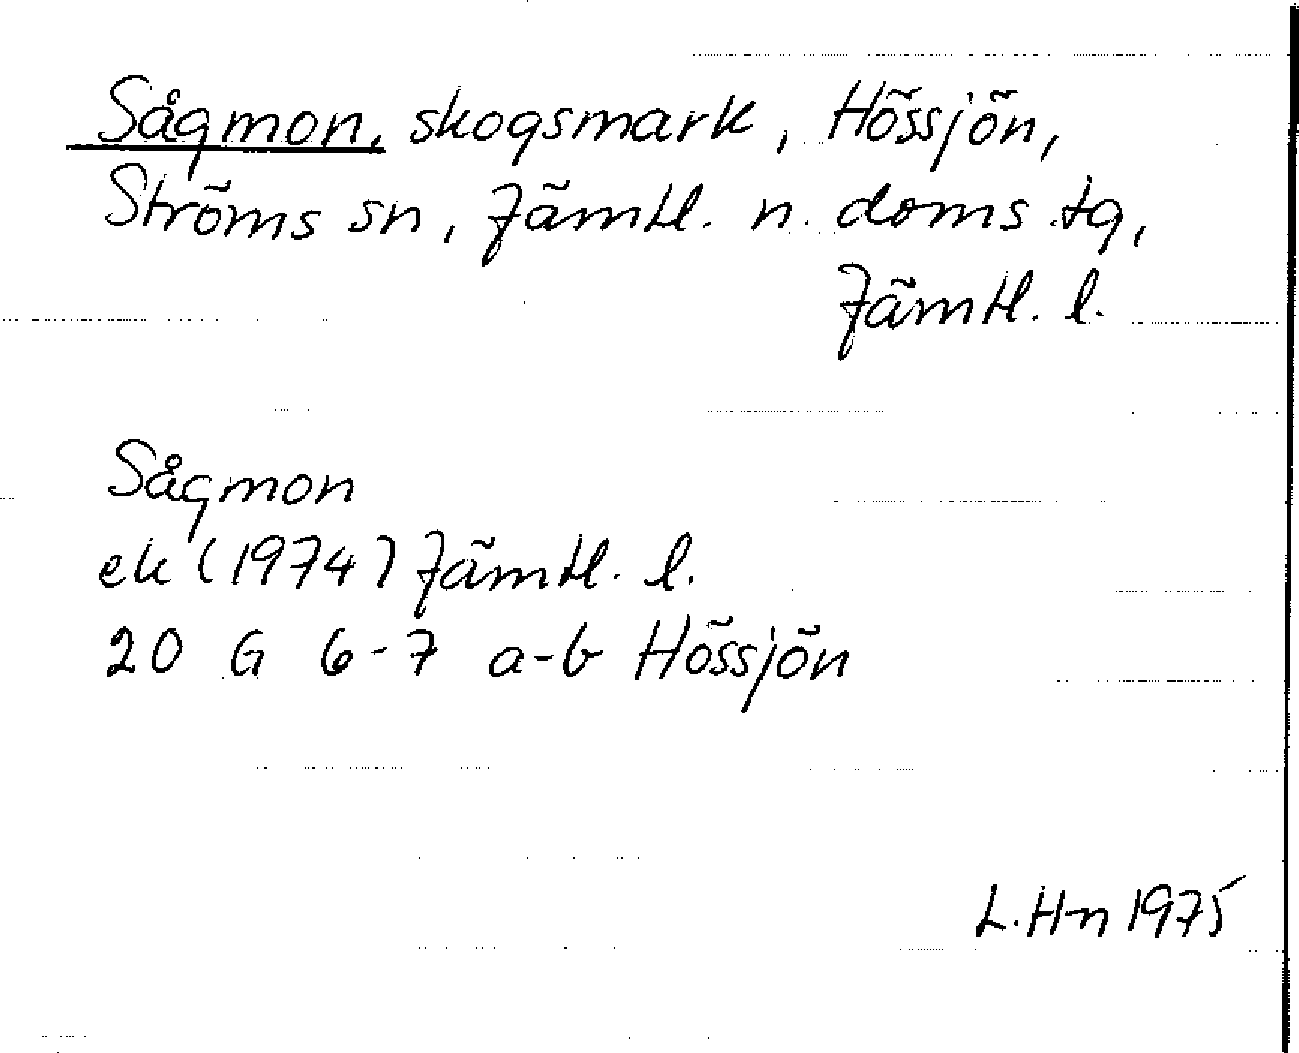 Sågmon, skogsmark, Hössjön,
Ströms sn, Jämtl. n. doms. tg,
Jämtl. l.
Sågmon
ek (1974) Jämtl. l.
20 G 6-7 a-b Hössjön
L. H-n 1975